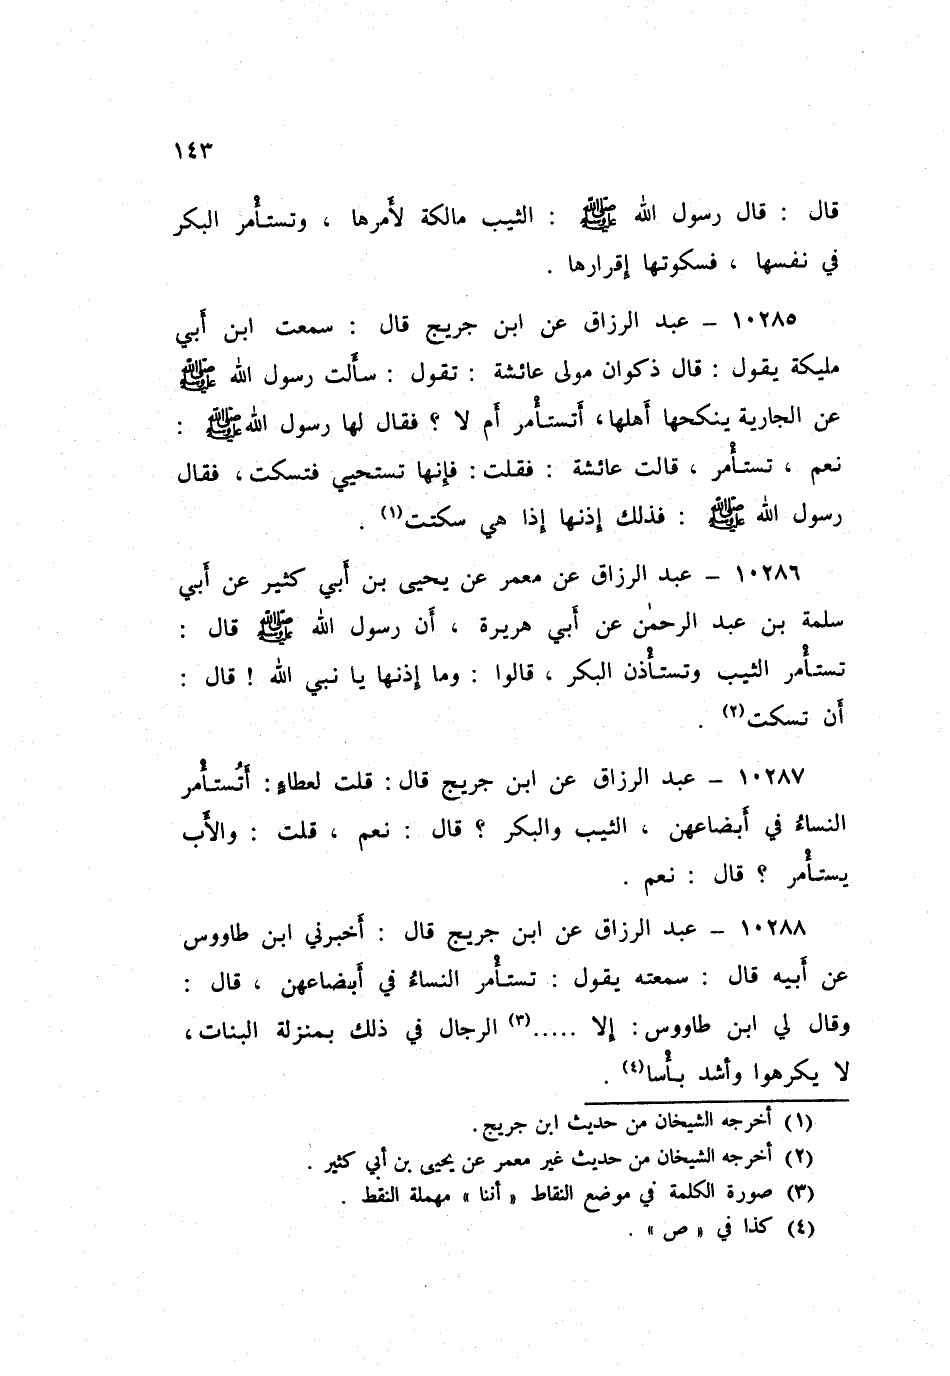 ١٤٣
قال : قال رسول الله ﷺ : الثيب مالكة لأمرها ، وتستأمر البكر
في نفسها ، فسكوتها إقرارها .
١٠٢٨٥ – عبد الرزاق عن ابن جريج قال : سمعت ابن أبي
مليكة يقول : قال ذكوان مولى عائشة : تقول : سألت رسول الله ﷺ
عن الجارية ينكحها أهلها، أتستأمر أم لا ؟ فقال لها رسول الله ﷺ :
نعم ، تستأمر ، قالت عائشة : فقلت : فإنها تستحيي فتسكت ، فقال
رسول الله ﷺ : فذلك إذنها إذا هي سكتت(١) .
١٠٢٨٦ – عبد الرزاق عن معمر عن يحيى بن أبي كثير عن أبي
سلمة بن عبد الرحمٰن عن أبي هريرة ، أن رسول الله ﷺ قال :
تستأمر الثيب وتستأذن البكر ، قالوا : وما إذنها يا نبي الله ! قال :
أن تسكت(٢) .
١٠٢٨٧ – عبد الرزاق عن ابن جريج قال : قلت لعطاءٍ : أتُستأمر
النساءُ في أبضاعهن ، الثيب والبكر ؟ قال : نعم ، قلت : والأب
يستأمر ؟ قال : نعم .
١٠٢٨٨ – عبد الرزاق عن ابن جريج قال : أخبرني ابن طاووس
عن أبيه قال : سمعته يقول : تستأمر النساءُ في أبضاعهن ، قال :
وقال لي ابن طاووس : إلا .....(٣) الرجال في ذلك بمنزلة البنات ،
لا يكرهوا وأشد بأسا(٤) .
(١) أخرجه الشيخان من حديث ابن جريج .
(٢) أخرجه الشيخان من حديث غير معمر عن يحيى بن أبي كثير .
(٣) صورة الكلمة في موضع النقاط « أننا » مهملة النقط .
(٤) كذا في « ص » .